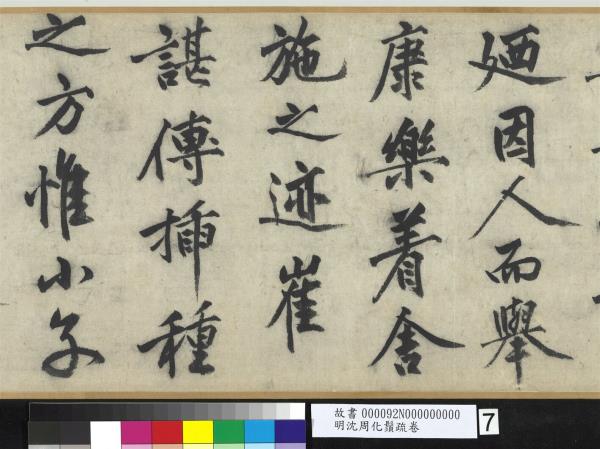 廼因人而舉
康樂着舍
施之迹崔
諶傳揷種
之方惟小子
故書 000092N000000000
明沈周化鬚疏卷
7